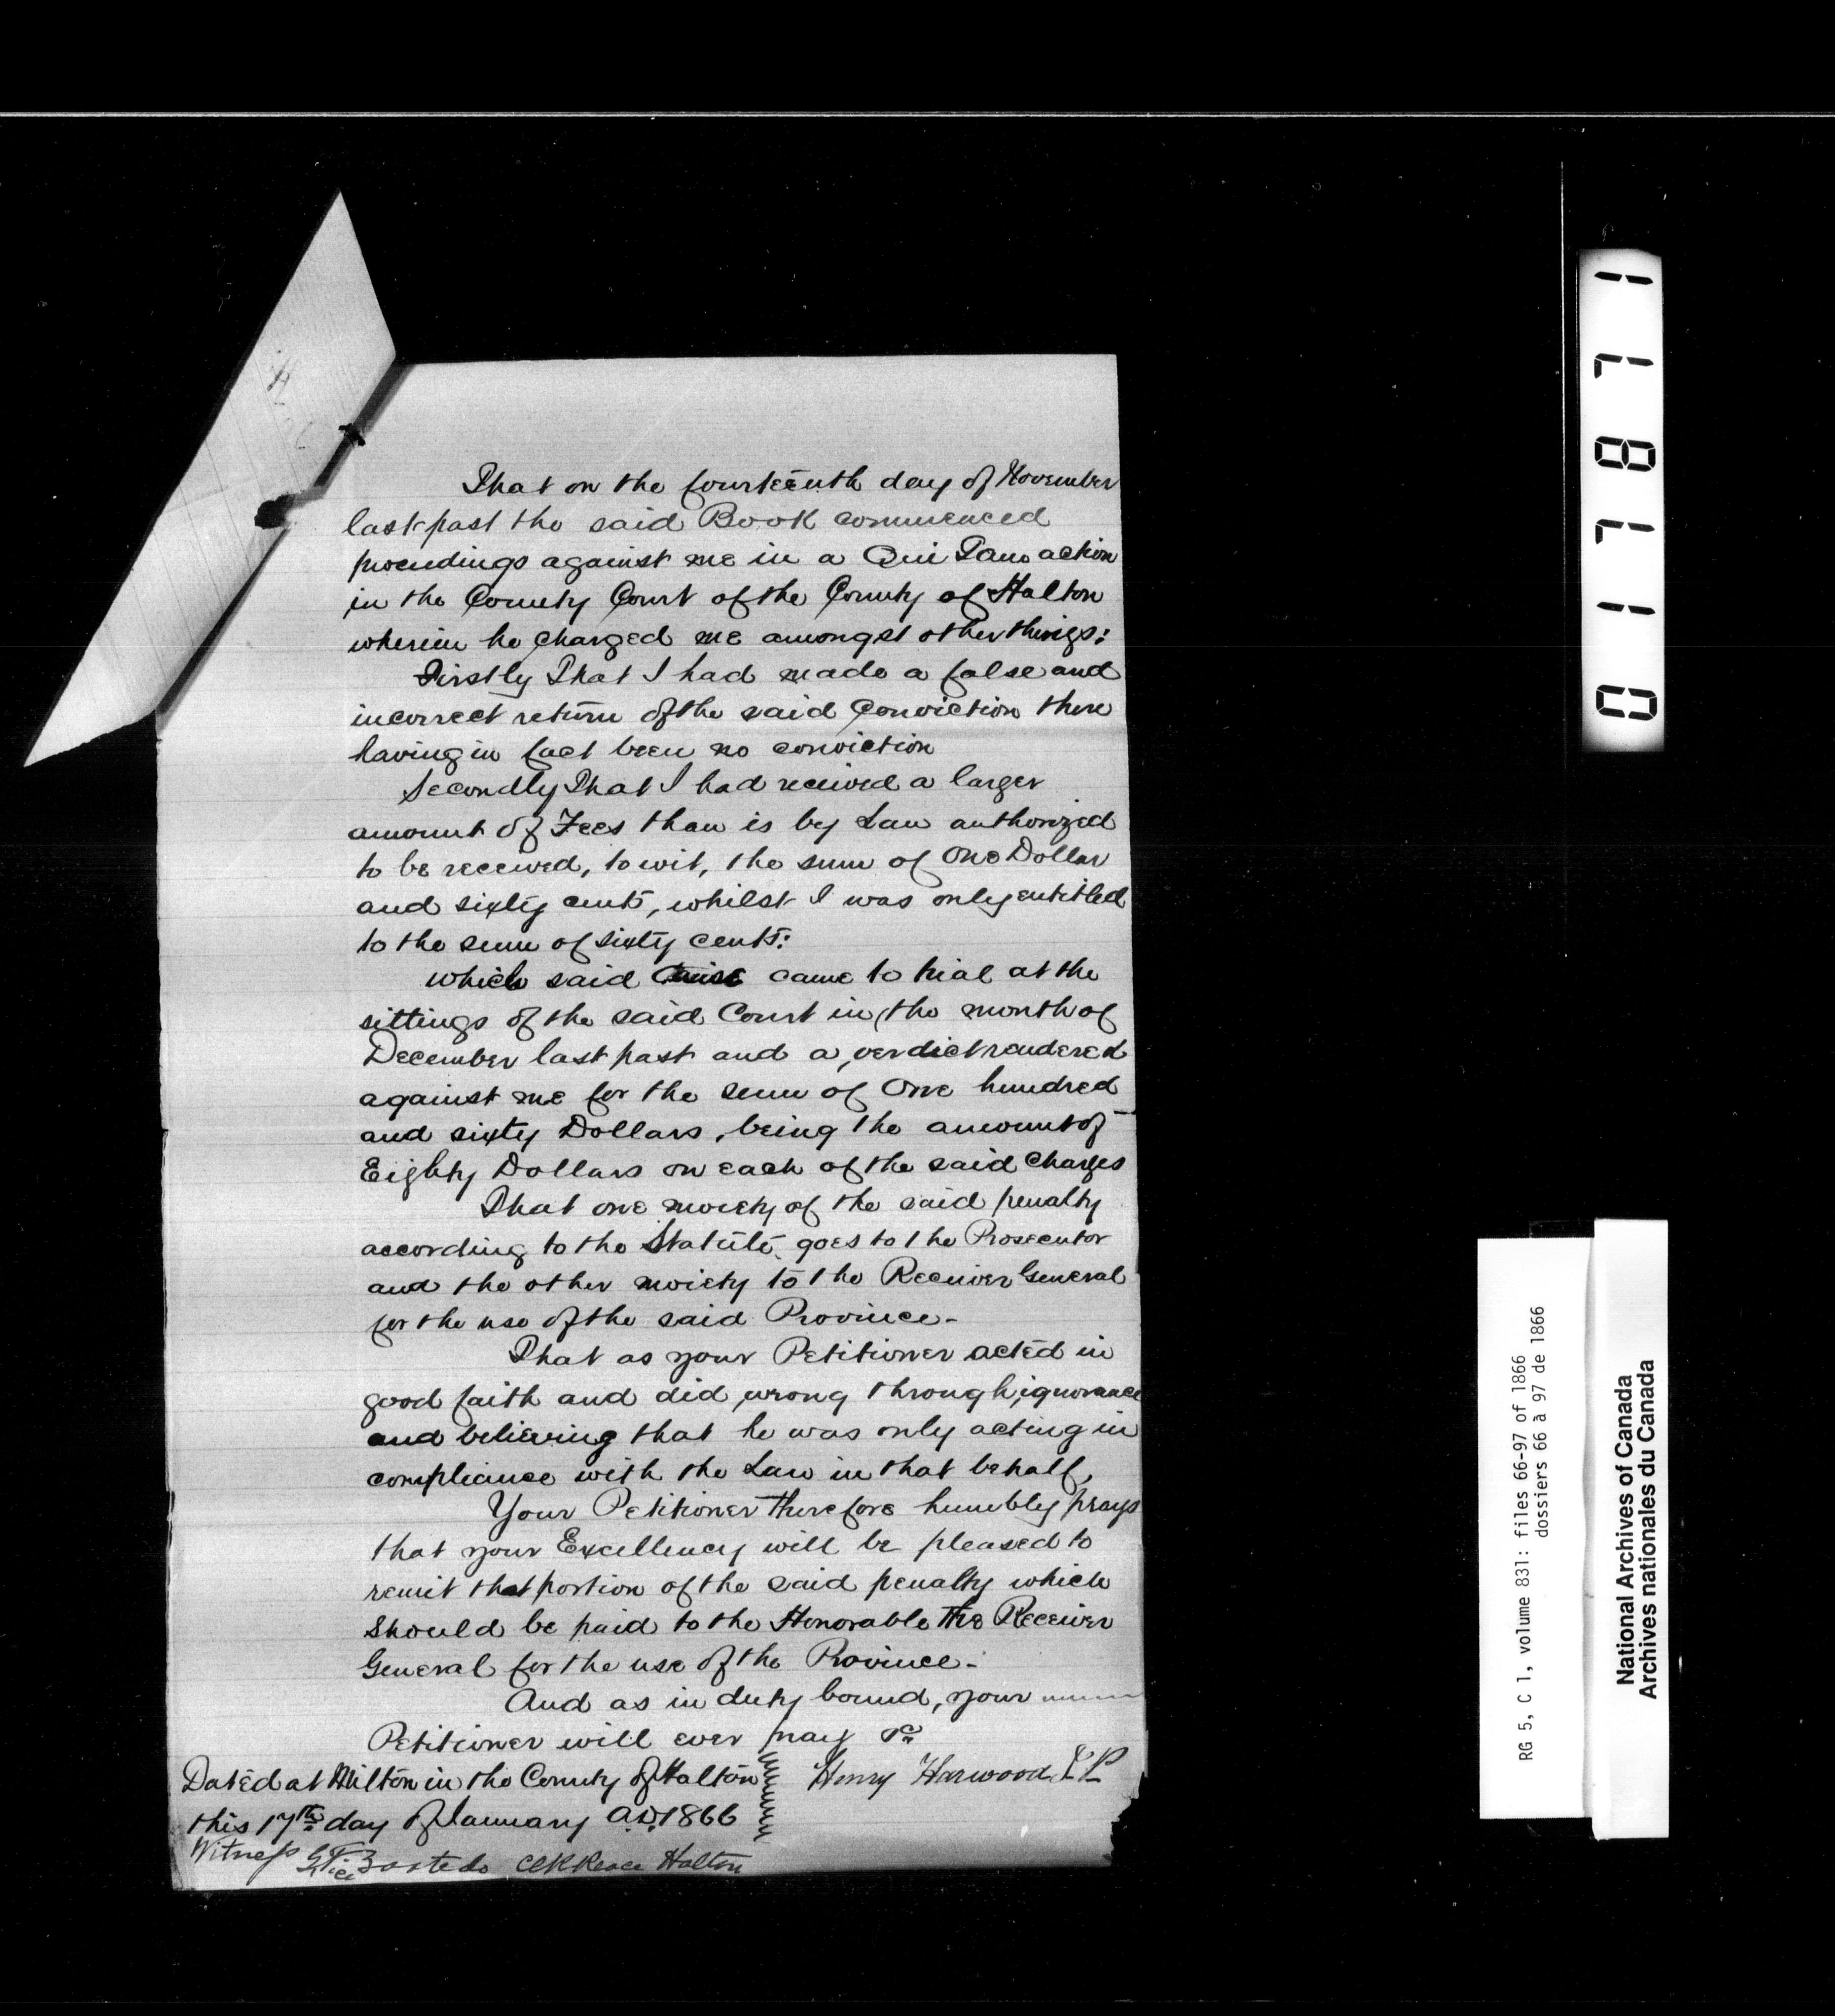 That on the fourteenth day of November
last past the said Book commenced
proceedings against me in a Qui Tam action
in the County Court of the County of Halton
wherein he charged me amongst other things:
Firstly That I had made a false and
incorrect return of the said Conviction there
having in fact been no conviction
Secondly That I had received a larger
amount of Fees than is by Law authorized
to be received, to wit, the sum of One Dollar
and sixty cents, whilst I was only entitled
to the sum of sixty cents:
which said Cause came to trial at the
sittings of the said Court in the month of
December last past and a verdict rendered
against me for the sum of One hundred
and sixty Dollars, being the amount of
Eighty Dollars on each of the said Charges
That one moiety of the said penalty
according to the Statute goes to the Prosecutor
and the other moiety to the Receiver General
for the use of the said Province-
That as your Petitioner acted in
good faith and did wrong through ignorance
and believing that he was only acting in
compliance with the Law in that behalf,
Your Petitioner therefore humbly prays
that your Excellency will be pleased to
remit that portion of the said penalty which
should be paid to the Honorable the Receiver
General for the use of the Province-
And as in duty bound, your
Petitioner will ever pray &c
Dated at Milton in the County of Halton
this 17th day of January A.D. 1866
Henry Harwood J P
Witness Bastedo Clk Peace Halton
0117871
RG 5, C 1, volume 831: files 66-97 of 1866
dossiers 66 à 97 de 1866
National Archives of Canada
Archives nationales du Canada